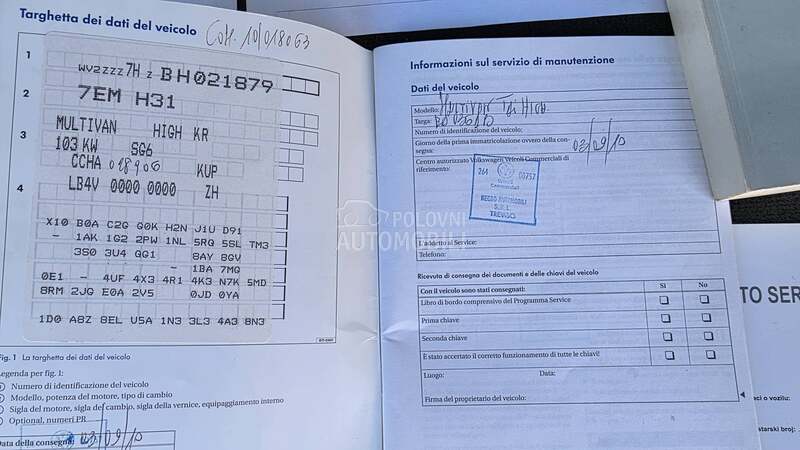 Targhetta dei dati del veicolo
1
WV2ZZZ7H Z BH021879
2
7EM H31
3
MULTIVAN HIGH KR
103 KW SG6
CCHA 018906 KUP
4
LB4V 0000 0000 ZH
X10 B0A C2G G0K H2N J1U D91
- 1AK 1G2 2PW 1NL 5RQ 5SL TM3
3S0 3U4 GG1 8AY 8GV
- 1BA 7MG
0E1 - 4UF 4X3 4R1 4K3 N7K 5MD
8RM 2JG E0A 2V5 0JD 0YA
1D0 A8Z 8EL U5A 1N3 3L3 4A3 8N3
Fig. 1 La targhetta dei dati del veicolo
Legenda per fig. 1:
Numero di identificazione del veicolo
Modello, potenza del motore, tipo di cambio
Sigla del motore, sigla del cambio, sigla della vernice, equipaggiamento interno
Optional, numeri PR
Data della consegna: 03/09/10
Informazioni sul servizio di manutenzione
Dati del veicolo
Modello: MULTIVAN
Targa:
Numero di identificazione del veicolo:
Giorno della prima immatricolazione ovvero della con-
segna: 03/09/10
Centro autorizzato Volkswagen Veicoli Commerciali di
riferimento:
264 00757
L'addetto al Service:
Telefono:
Ricevuta di consegna dei documenti e delle chiavi del veicolo
Con il veicolo sono stati consegnati: Sì No
Libro di bordo comprensivo del Programma Service
Prima chiave
Seconda chiave
È stato accertato il corretto funzionamento di tutte le chiavi!
Luogo: Data:
Firma del proprietario del veicolo:
POLOVNI
AUTOMOBILI
TO SER
ci o vozilu: